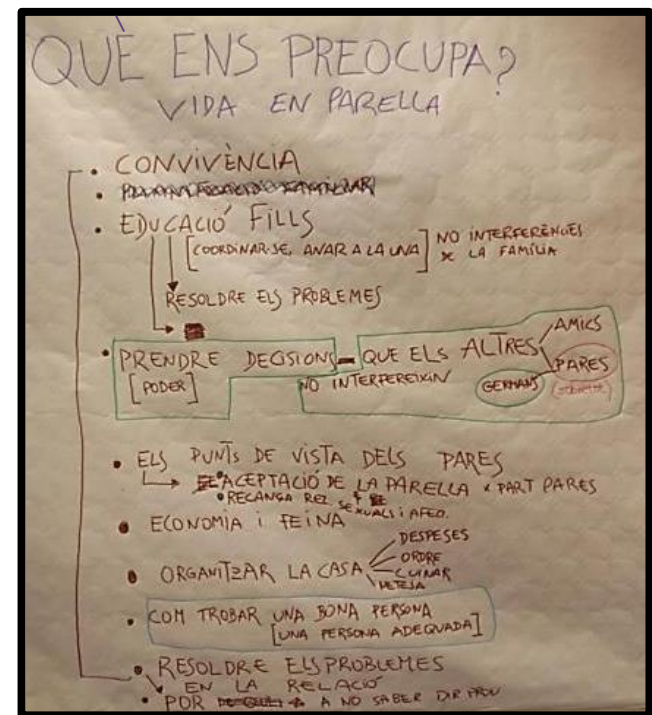 QUÈ ENS PREOCUPA?
VIDA EN PARELLA
• CONVIVÈNCIA
• EDUCACIÓ FILLS
[COORDINAR-SE, ANAR A LA UNA] NO INTERFERÈNCIES
x LA FAMÍLIA
RESOLDRE ELS PROBLEMES
• PRENDRE DECISIONS - QUE ELS ALTRES
AMICS
PARES
[PODER]
NO INTERFEREIXIN
GERMANS
• ELS PUNTS DE VISTA DELS PARES
ACEPTACIÓ DE LA PARELLA x PART PARES
• RECANÇA REL. SEXUALS i AFEC.
• ECONOMIA i FEINA
• ORGANITZAR LA CASA
DESPESES
ORDRE
CUINAR
NETEJA
• COM TROBAR UNA BONA PERSONA
[UNA PERSONA ADEQUADA]
• RESOLDRE ELS PROBLEMES
EN LA RELACIÓ
• POR A NO SABER DIR PROU